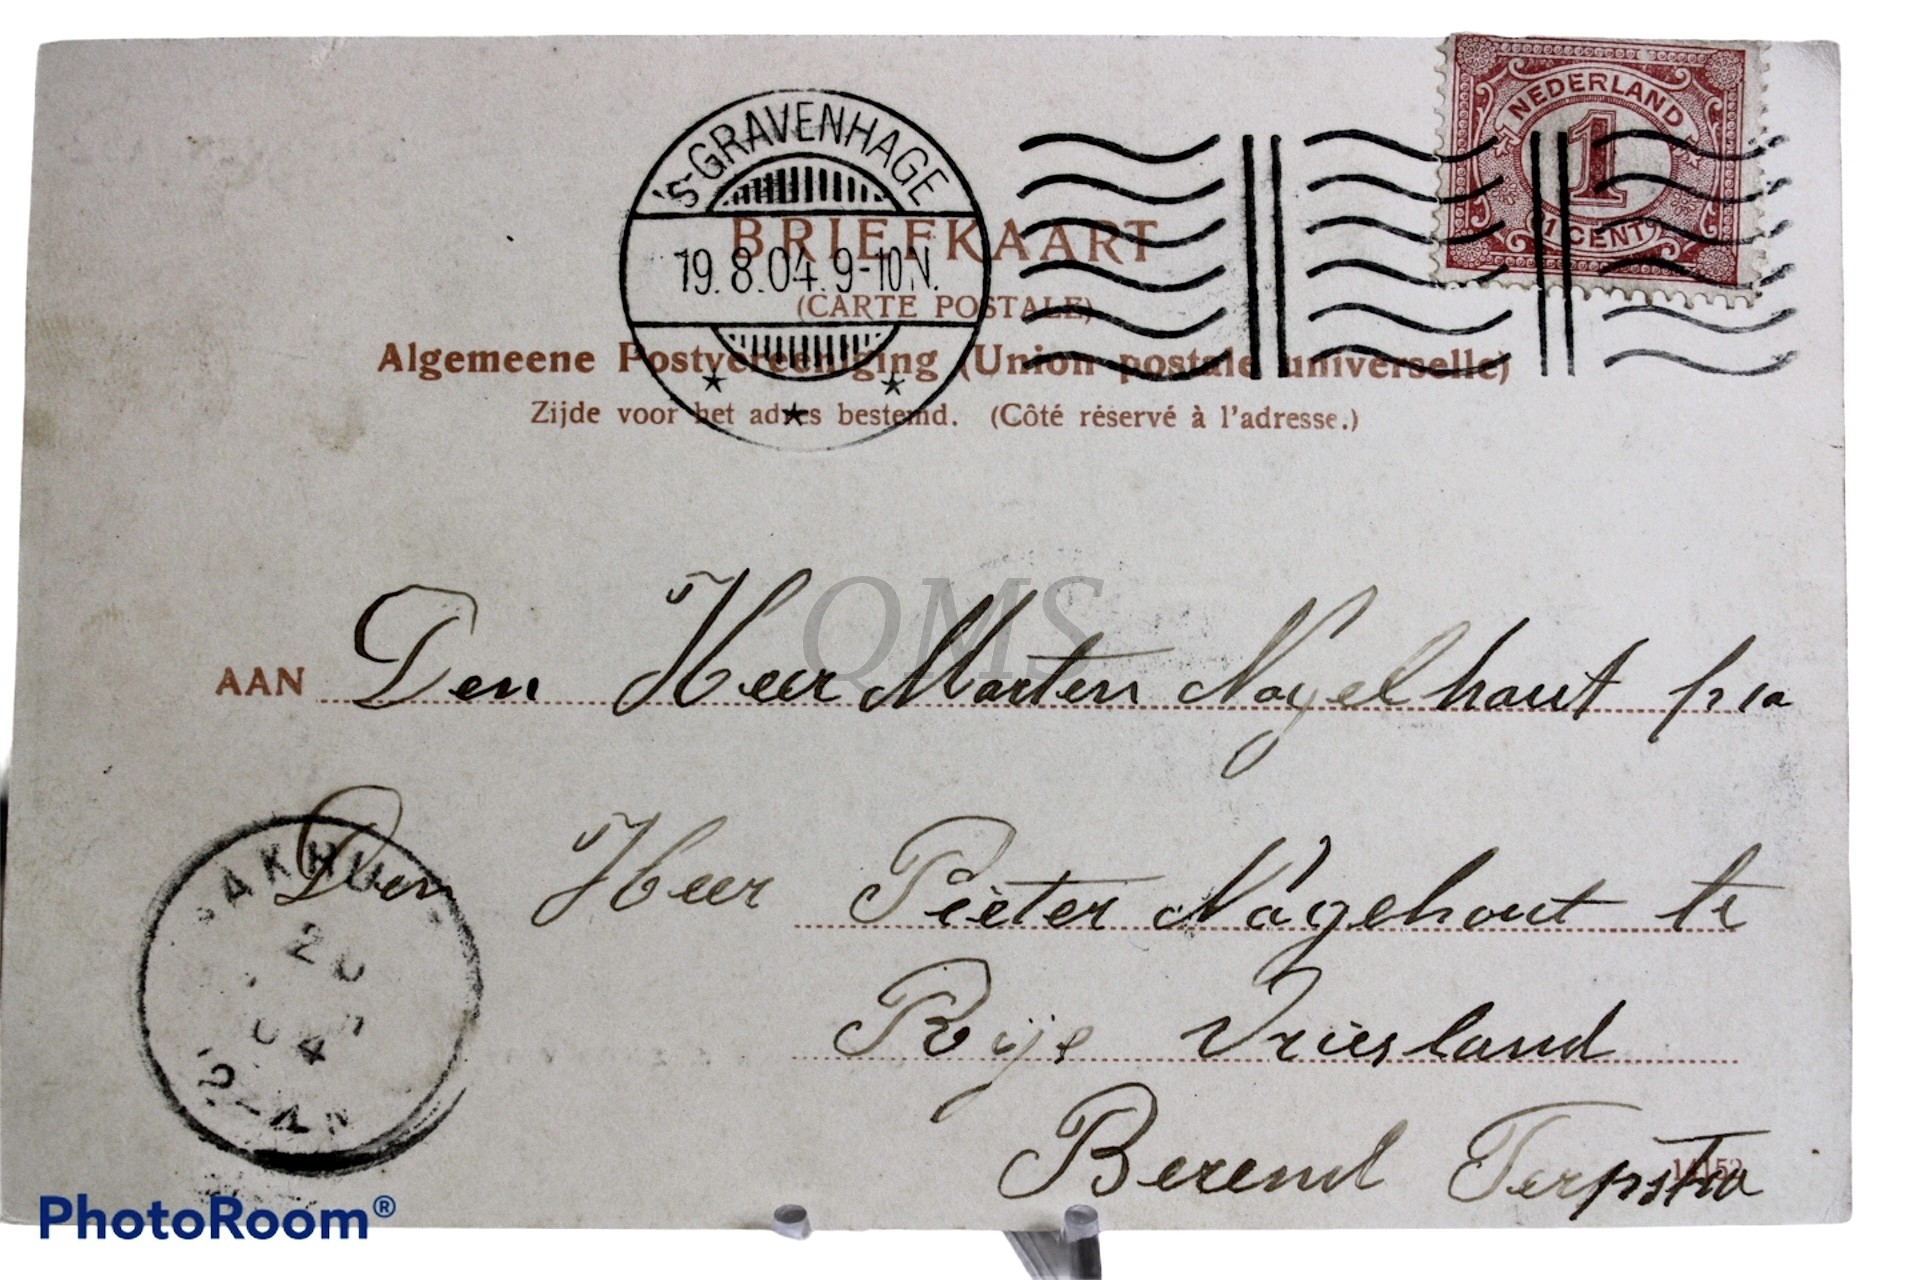 NEDERLAND
1
1 CENT
'S-GRAVENHAGE
19.8.04. 9-10N.
BRIEFKAART
(CARTE POSTALE)
Algemeene Postvereeniging (Union postale universelle)
Zijde voor het adres bestemd. (Côté réservé à l'adresse.)
QMS
AAN Den Heer Marten Nagelhout p/a
Den Heer Pieter Nagehout te
Rije Vriesland
Berend Terpstra
AKHU
20
04
PhotoRoom®